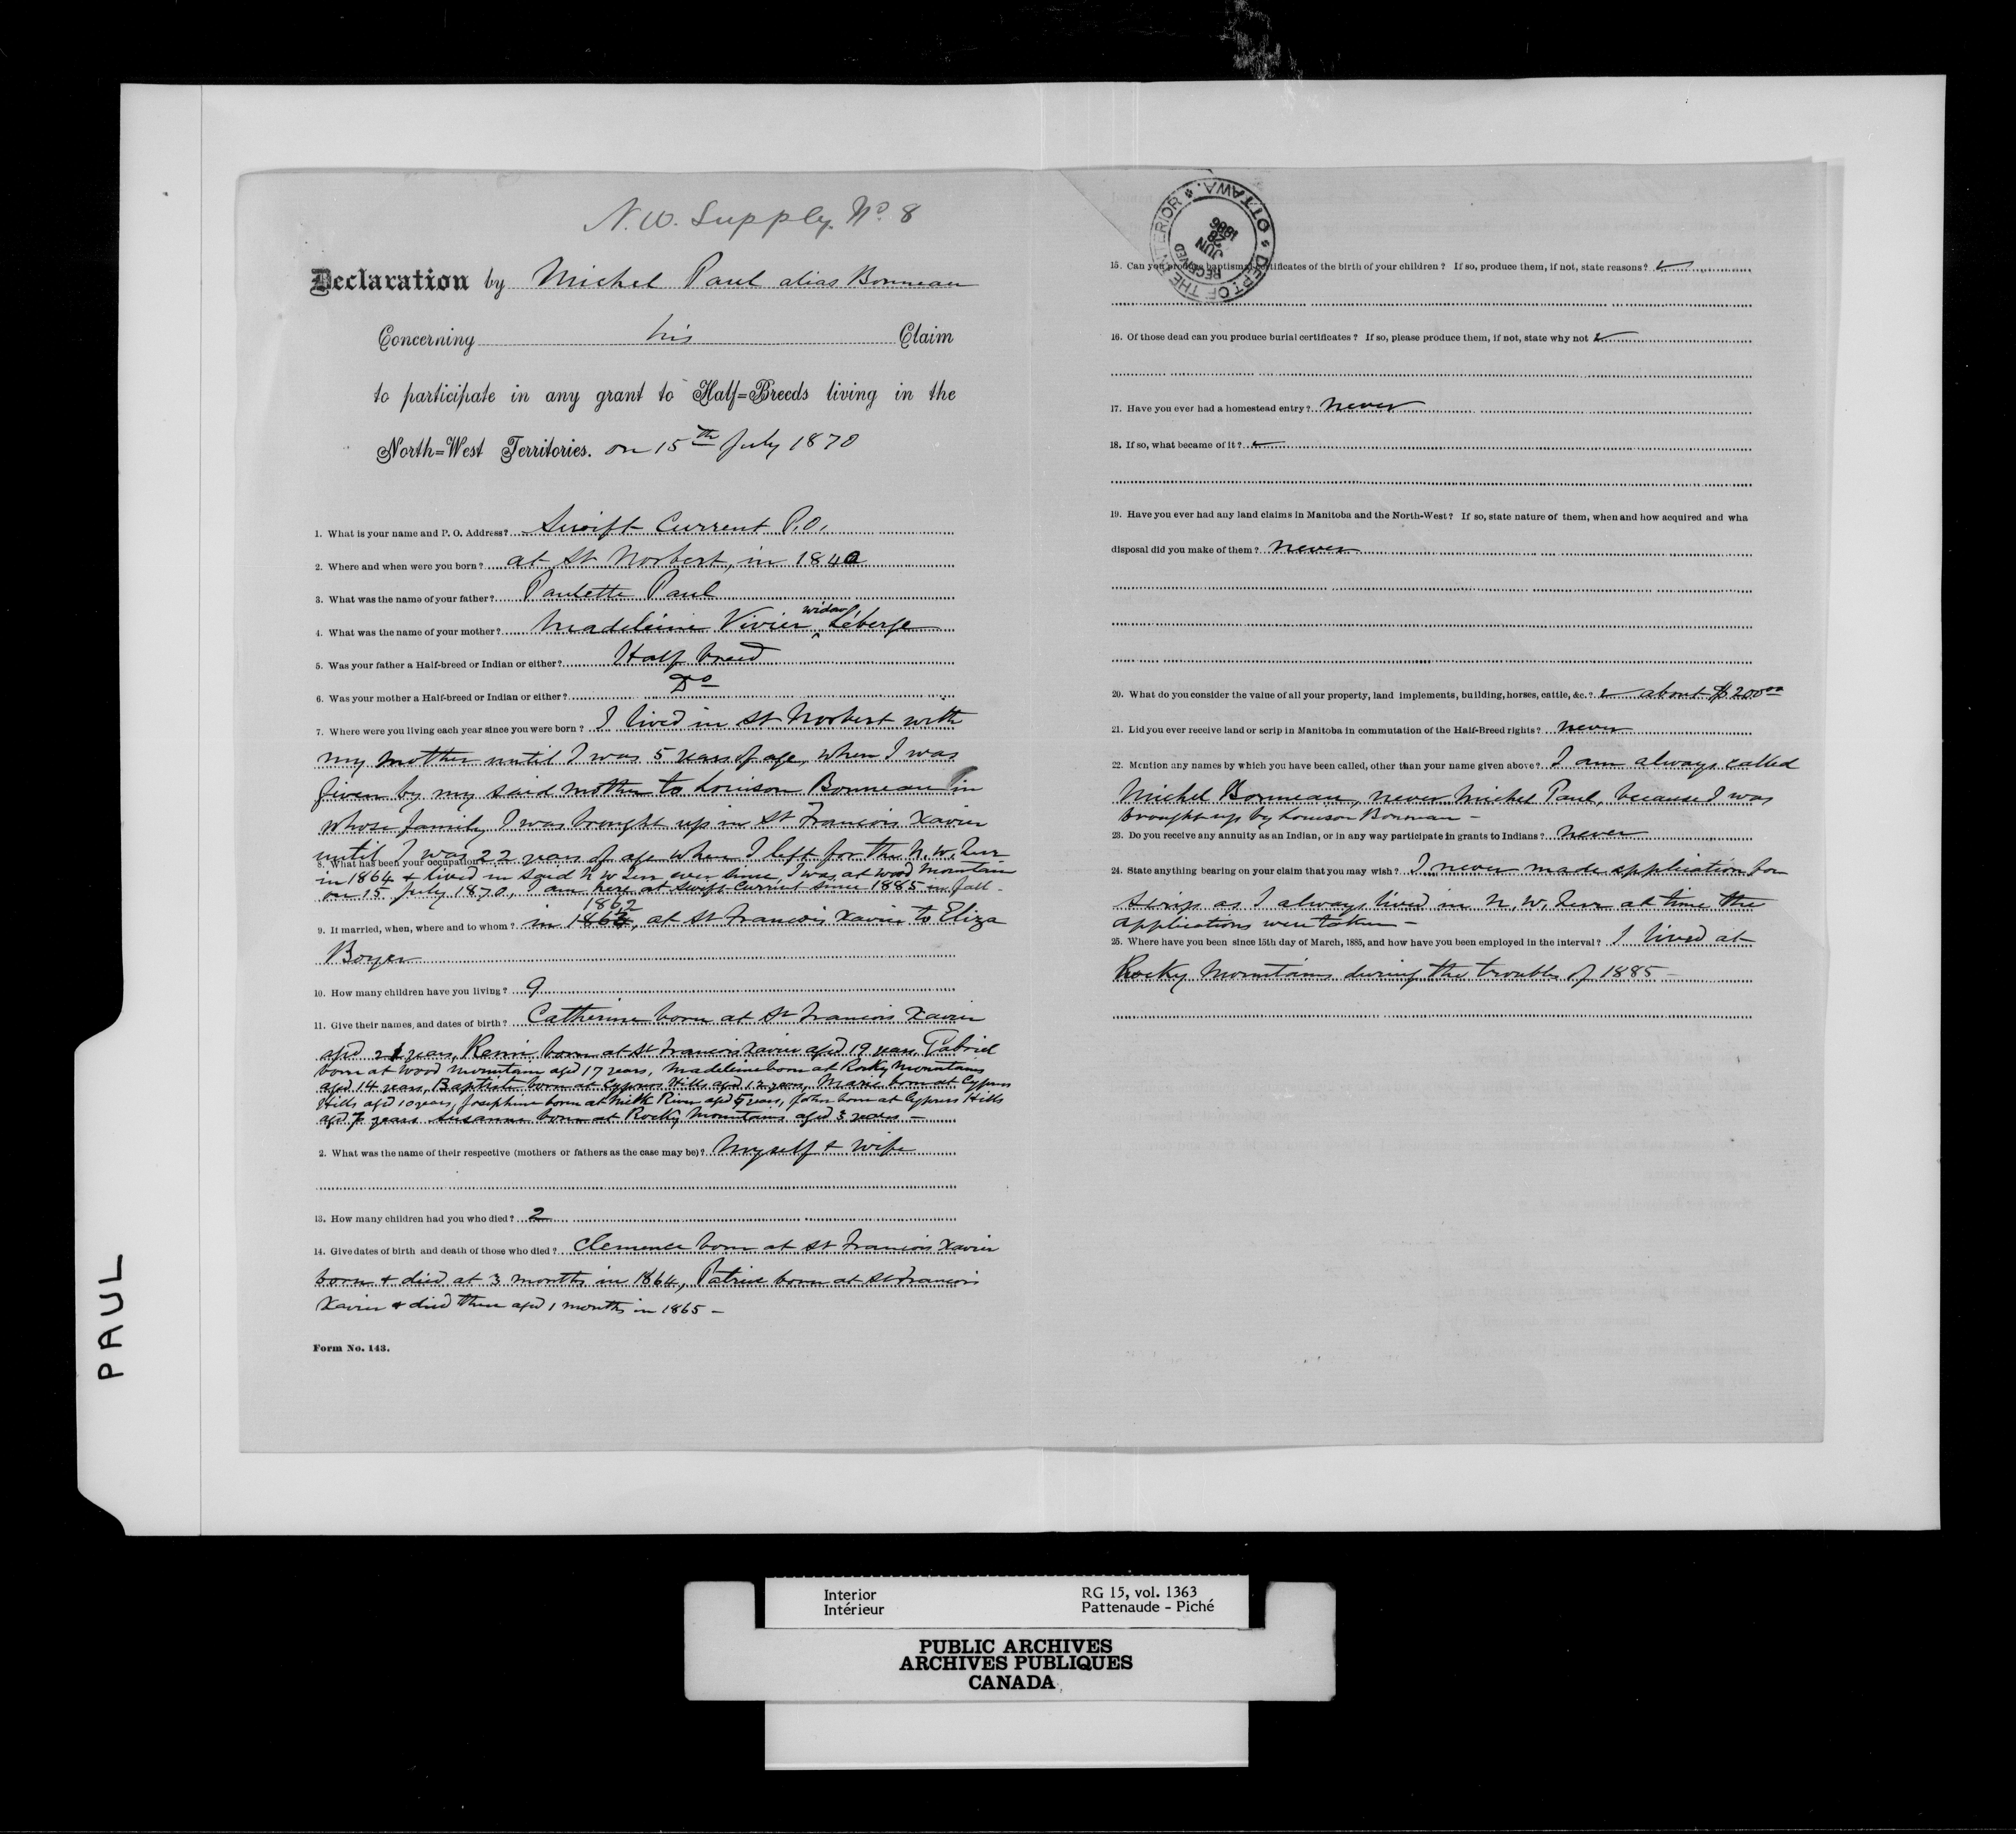 N.W. Supply. No 8
Declaration by Michel Paul alias Bonneau
Concerning his Claim
to participate in any grant to Half=Breeds living in the
North=West Territories. on 15th July 1870
1. What is your name and P. O. Address? Swift Current P.O.
2. Where and when were you born? at St Norbert, in 1840
3. What was the name of your father? Paulette Paul
widow
4. What was the name of your mother? Madeleine Vivier ^ Léberge
5. Was your father a Half-breed or Indian or either? Half breed
6. Was your mother a Half-breed or Indian or either? Do
7. Where were you living each year since you were born? I lived in St Norbert with
my mother until I was 5 years of age, when I was
given by my said mother to Louison Bonneau in
whose family I was brought up in St Francois Xavier
until I was 22 years of age when I left for the N.W. Terr
8. What has been your occupation
in 1864 & lived in said N W Terr ever since, I was at Wood Mountain
on 15 July 1870, I am here at Swift Current since 1885 in fall -
1862
9. If married, when, where and to whom? in 1863, at St Francois Xavier to Eliza
Boyer
10. How many children have you living? 9
11. Give their names, and dates of birth? Catherine born at St Francois Xavier
aged 21 years, born at St Francois Xavier aged 19 years, Gabriel
born at Wood Mountain aged 17 years, Madeleine born at Rocky Mountains
aged 14 years, Baptiste born at Cypress Hills aged 12 years, Marie born at Cypress
Hills aged 10 years, Josephine born at Milk River aged years, John born at Cypress Hills
aged 7 years Susanne born at Rocky Mountains aged 3 years -
2. What was the name of their respective (mothers or fathers as the case may be)? Myself & wife
13. How many children had you who died? 2
14. Give dates of birth and death of those who died? Clemence born at St Francois Xavier
born & died at 3 months in 1864, Patrice born at St Francois
Xavier & died there aged 1 months in 1865 -
Form No. 143.
DEPT. OF THE INTERIOR OTTAWA.
RECEIVED
JUN 28 1886
15. Can you produce baptismal certificates of the birth of your children? If so, produce them, if not, state reasons?
16. Of those dead can you produce burial certificates? If so, please produce them, if not, state why not
17. Have you ever had a homestead entry? never
18. If so, what became of it?
19. Have you ever had any land claims in Manitoba and the North-West? If so, state nature of them, when and how acquired and wha
disposal did you make of them? never
20. What do you consider the value of all your property, land implements, building, horses, cattle, &c.? about $200.00
21. Did you ever receive land or scrip in Manitoba in commutation of the Half-Breed rights? never
22. Mention any names by which you have been called, other than your name given above? I am always called
Michel Bonneau, never Michel Paul, because I was
brought up by Louison Bonneau -
23. Do you receive any annuity as an Indian, or in any way participate in grants to Indians? never
24. State anything bearing on your claim that you may wish? I never made application for
scrip as I always lived in N. W. Terr at time the
applications were taken -
25. Where have you been since 15th day of March, 1885, and how have you been employed in the interval? I lived at
Rocky Mountains during the troubles of 1885 -
PAUL
Interior
Intérieur
RG 15, vol. 1363
Pattenaude - Piché
PUBLIC ARCHIVES
ARCHIVES PUBLIQUES
CANADA